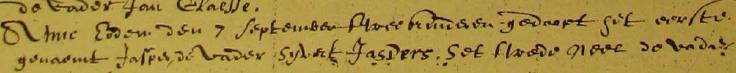 de vader Jan Claesse.
Anno Eodem den 7 September twee kinderen gedoopt het eerste
genaemt Jasper, de vader Syvert Jaspers. Het twede Neel de vader